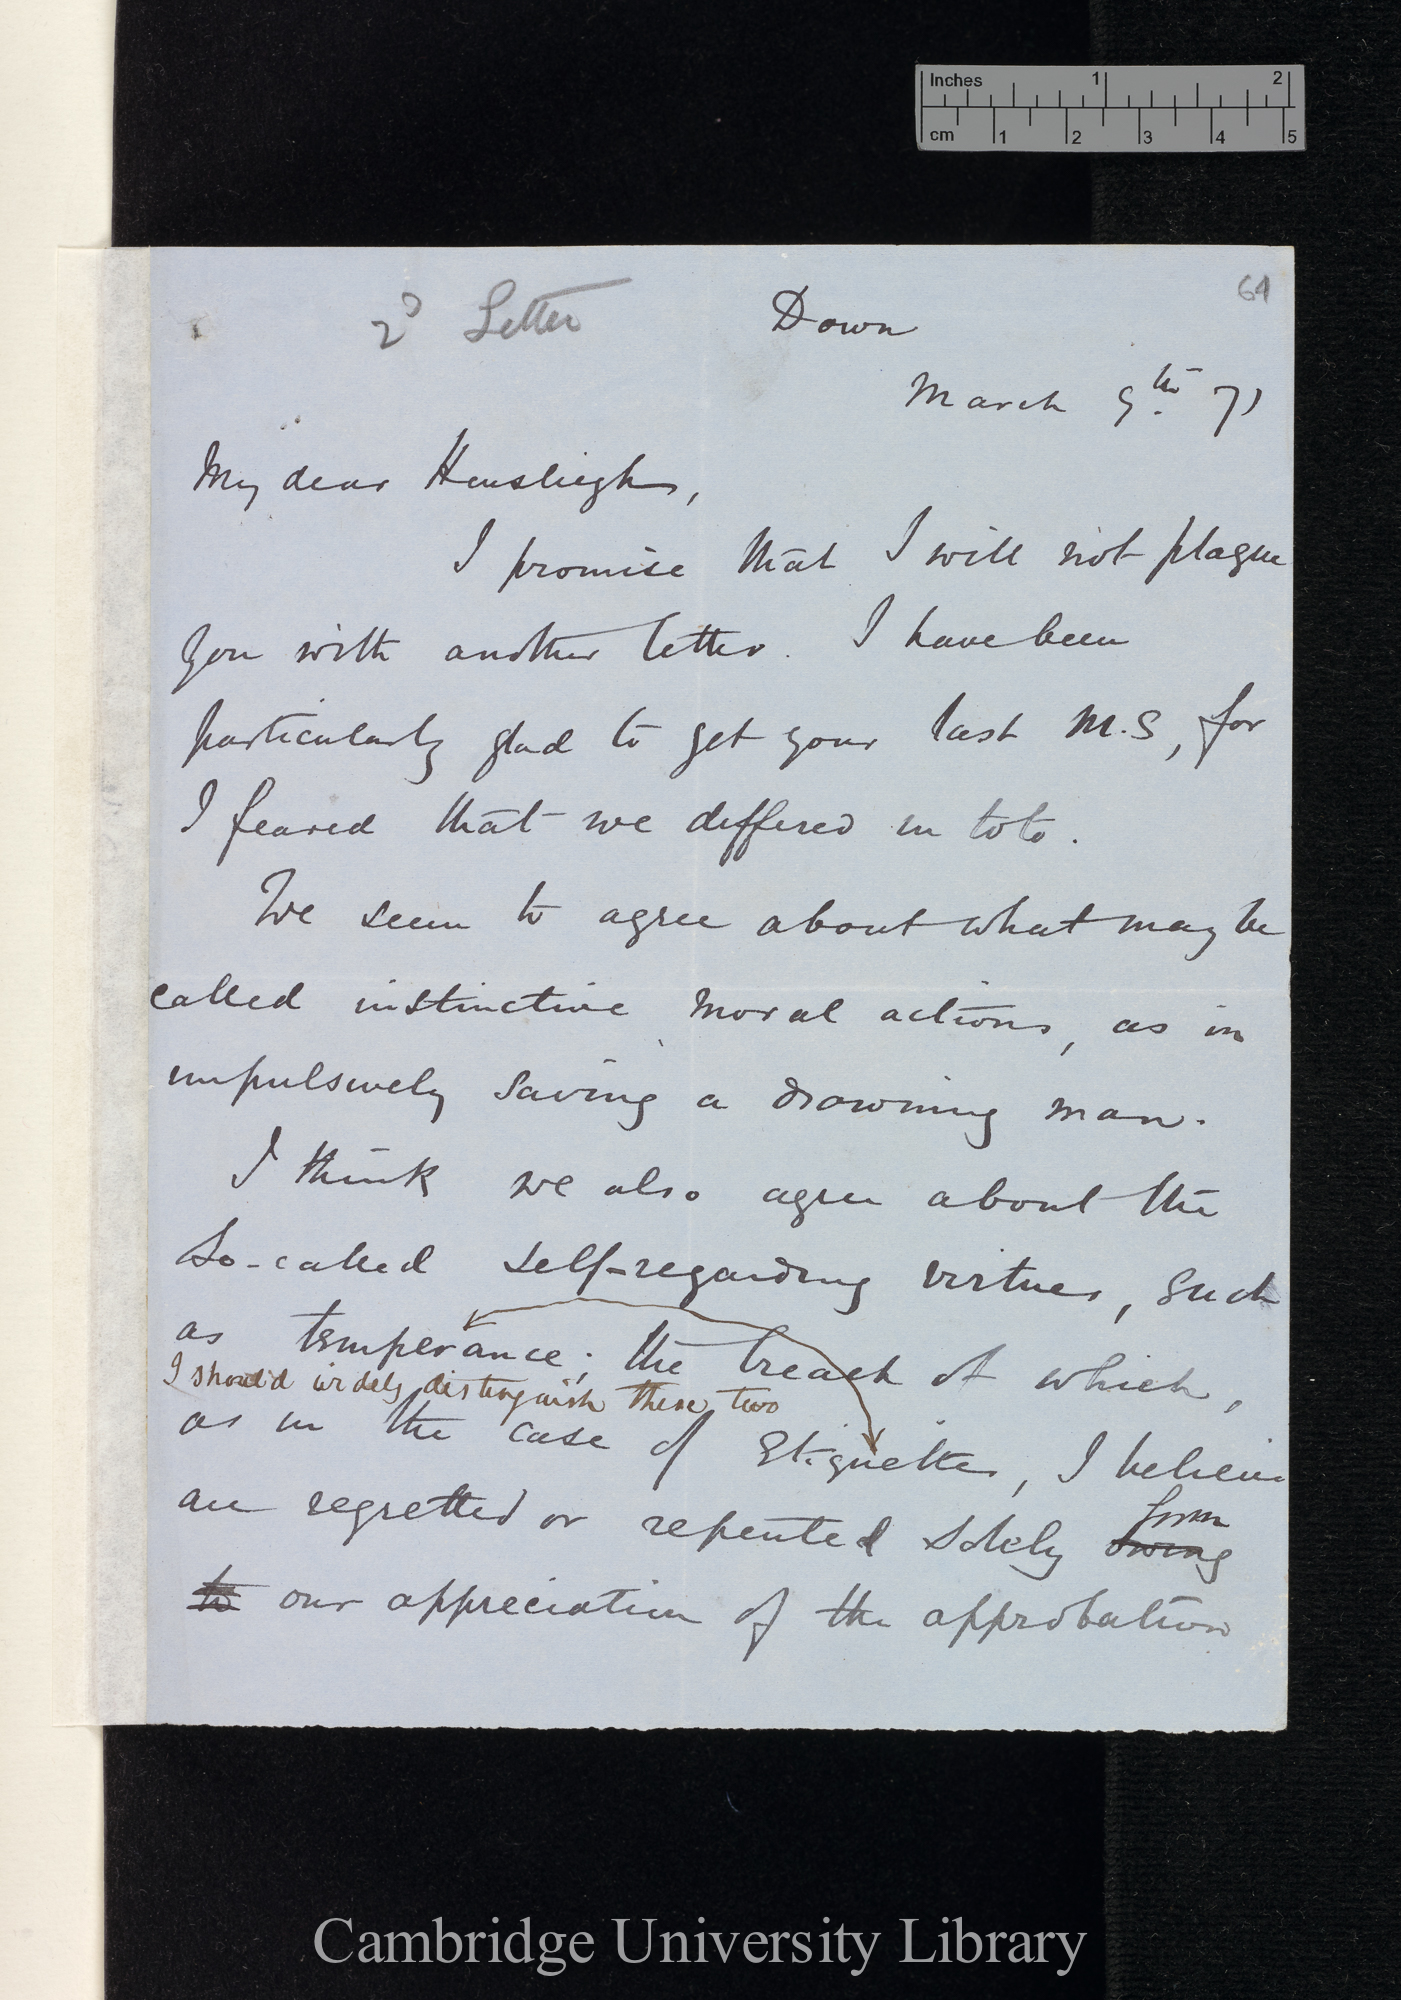 Inches 1 2
cm 1 2 3 4 5
64
2d Letter
Down
March 9th. 71
My dear Hensleigh,
I promise that I will not plague
you with another letter. I have been
particularly glad to get your last M.S, for
I feared that we differed in toto.
We seem to agree about what may be
called instinctive moral actions, as in
impulsively saving a drowning man.
I think we also agree about the
so-called self-regarding virtues, such
as temperance; the breach of which,
I should widely distinguish these two
as in the case of Etiquette, I believe
are regretted or repented solely owing from
to our appreciation of the approbation
Cambridge University Library